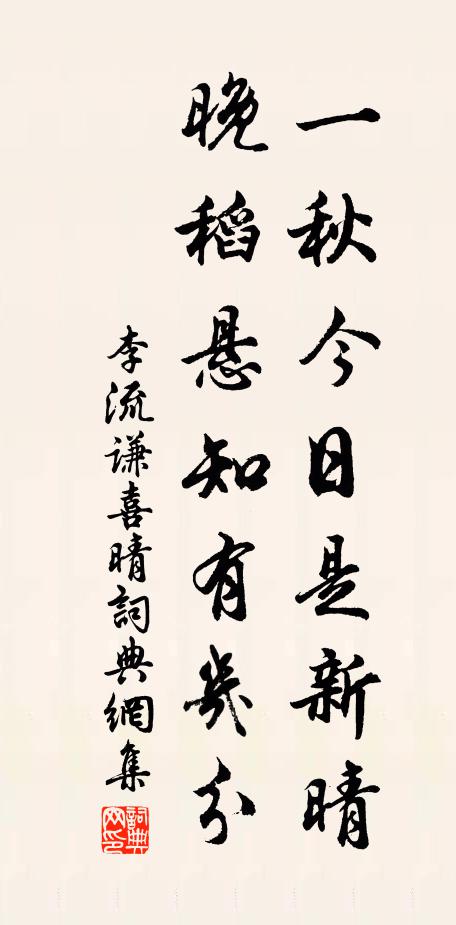 一秋今日是新晴
晚稻悬知有幾分
李流谦喜晴詞典網集
詞典网印